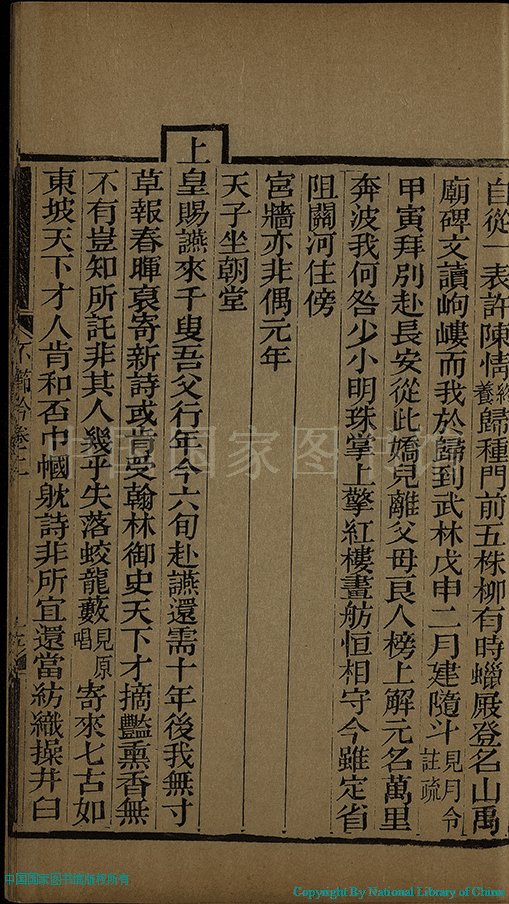 自從一表許陳情終養歸種門前五株柳有時蠟屐登名山禹
廟碑文讀岣嶁而我於歸到武林戊申二月建隨斗見月令註疏
甲寅拜別赴長安從此嬌兒離父母良人榜上解元名萬里
奔波我何咎少小明珠掌上擎紅樓畫舫恒相守今雖定省
阻關河住傍
宮牆亦非偶元年
天子坐朝堂
上皇賜讌來千叟吾父行年今六旬赴讌還需十年後我無寸
草報春暉裒寄新詩或肯受翰林御史天下才摘豔熏香無
不有豈知所託非其人幾乎失落蛟龍藪見原唱寄來七古如
東坡天下才人肯和否巾幗躭詩非所宜還當紡織操井臼
不節吟卷十二
中国国家图书馆
中国国家图书馆版权所有
Copyright By National Library of China